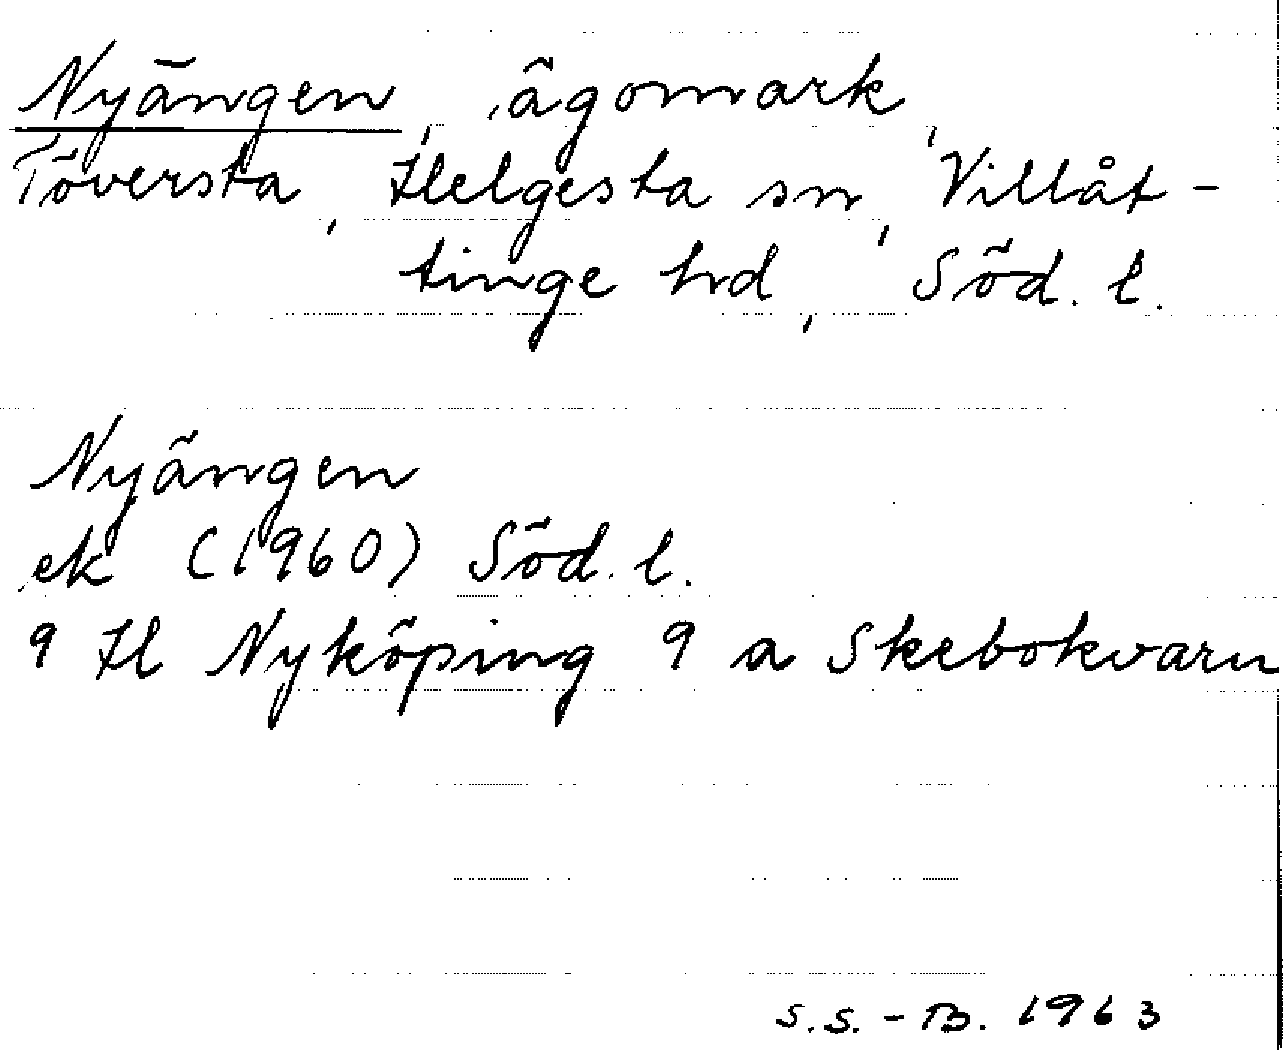 Nyängen, ägomark,
Töversta, Helgesta sn, Villåt-
tinge hd, Söd. l.
Nyängen
ek (1960) Söd. l.
9 H Nyköping 9 a Skebokvarn
S.S.-B. 1963